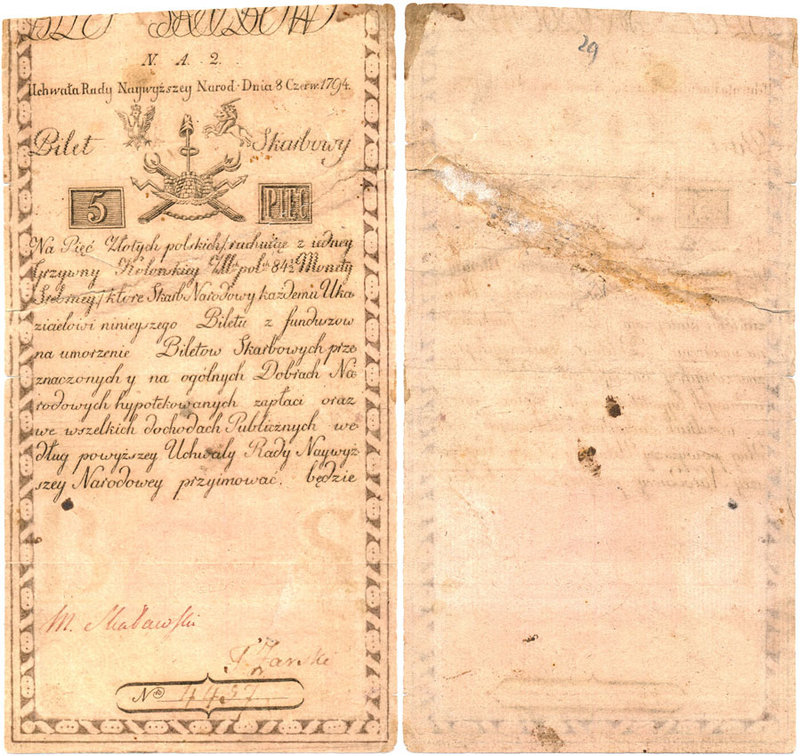 N. A. 2.
Uchwała Rady Naywyższey Narod. Dnia 8 Czerw. 1794.
Bilet Skarbowy
5 PIĘC
Na Pięć Złotych polskich/rachuiąc z iedney
Grzywny Kolonskiey Zł. pol. 84½ Monety
Srebrney/ktore Skarb Narodowy każdemu Uka
zicielowi ninieyszego Biletu z funduszow
na umorzenie Biletow Skarbowych prze
znaczonych y na ogólnych Dobrach Na
rodowych hypotekowanych zapłaci oraz
we wszelkich dochodach Publicznych we
dług powyższey Uchwały Rady Naywyż
szey Narodowey przyimować będzie
M. Skabawski
Zarski
No 4457
29